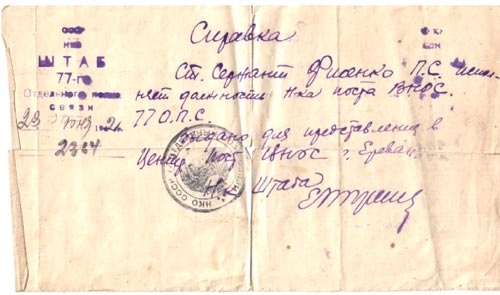 СССР
НКО
ШТАБ
77-го
Отдельного полка
связи
23
2364
Справка
Ст. Сержант Фисенко П.С. испол-
няет должность Н-ка поста ВНОС.
77 О.П.С.
Выдано для представления в
Центр. Пост ВНОС г. Ереван.
Н-к Штаба
НКО СССР